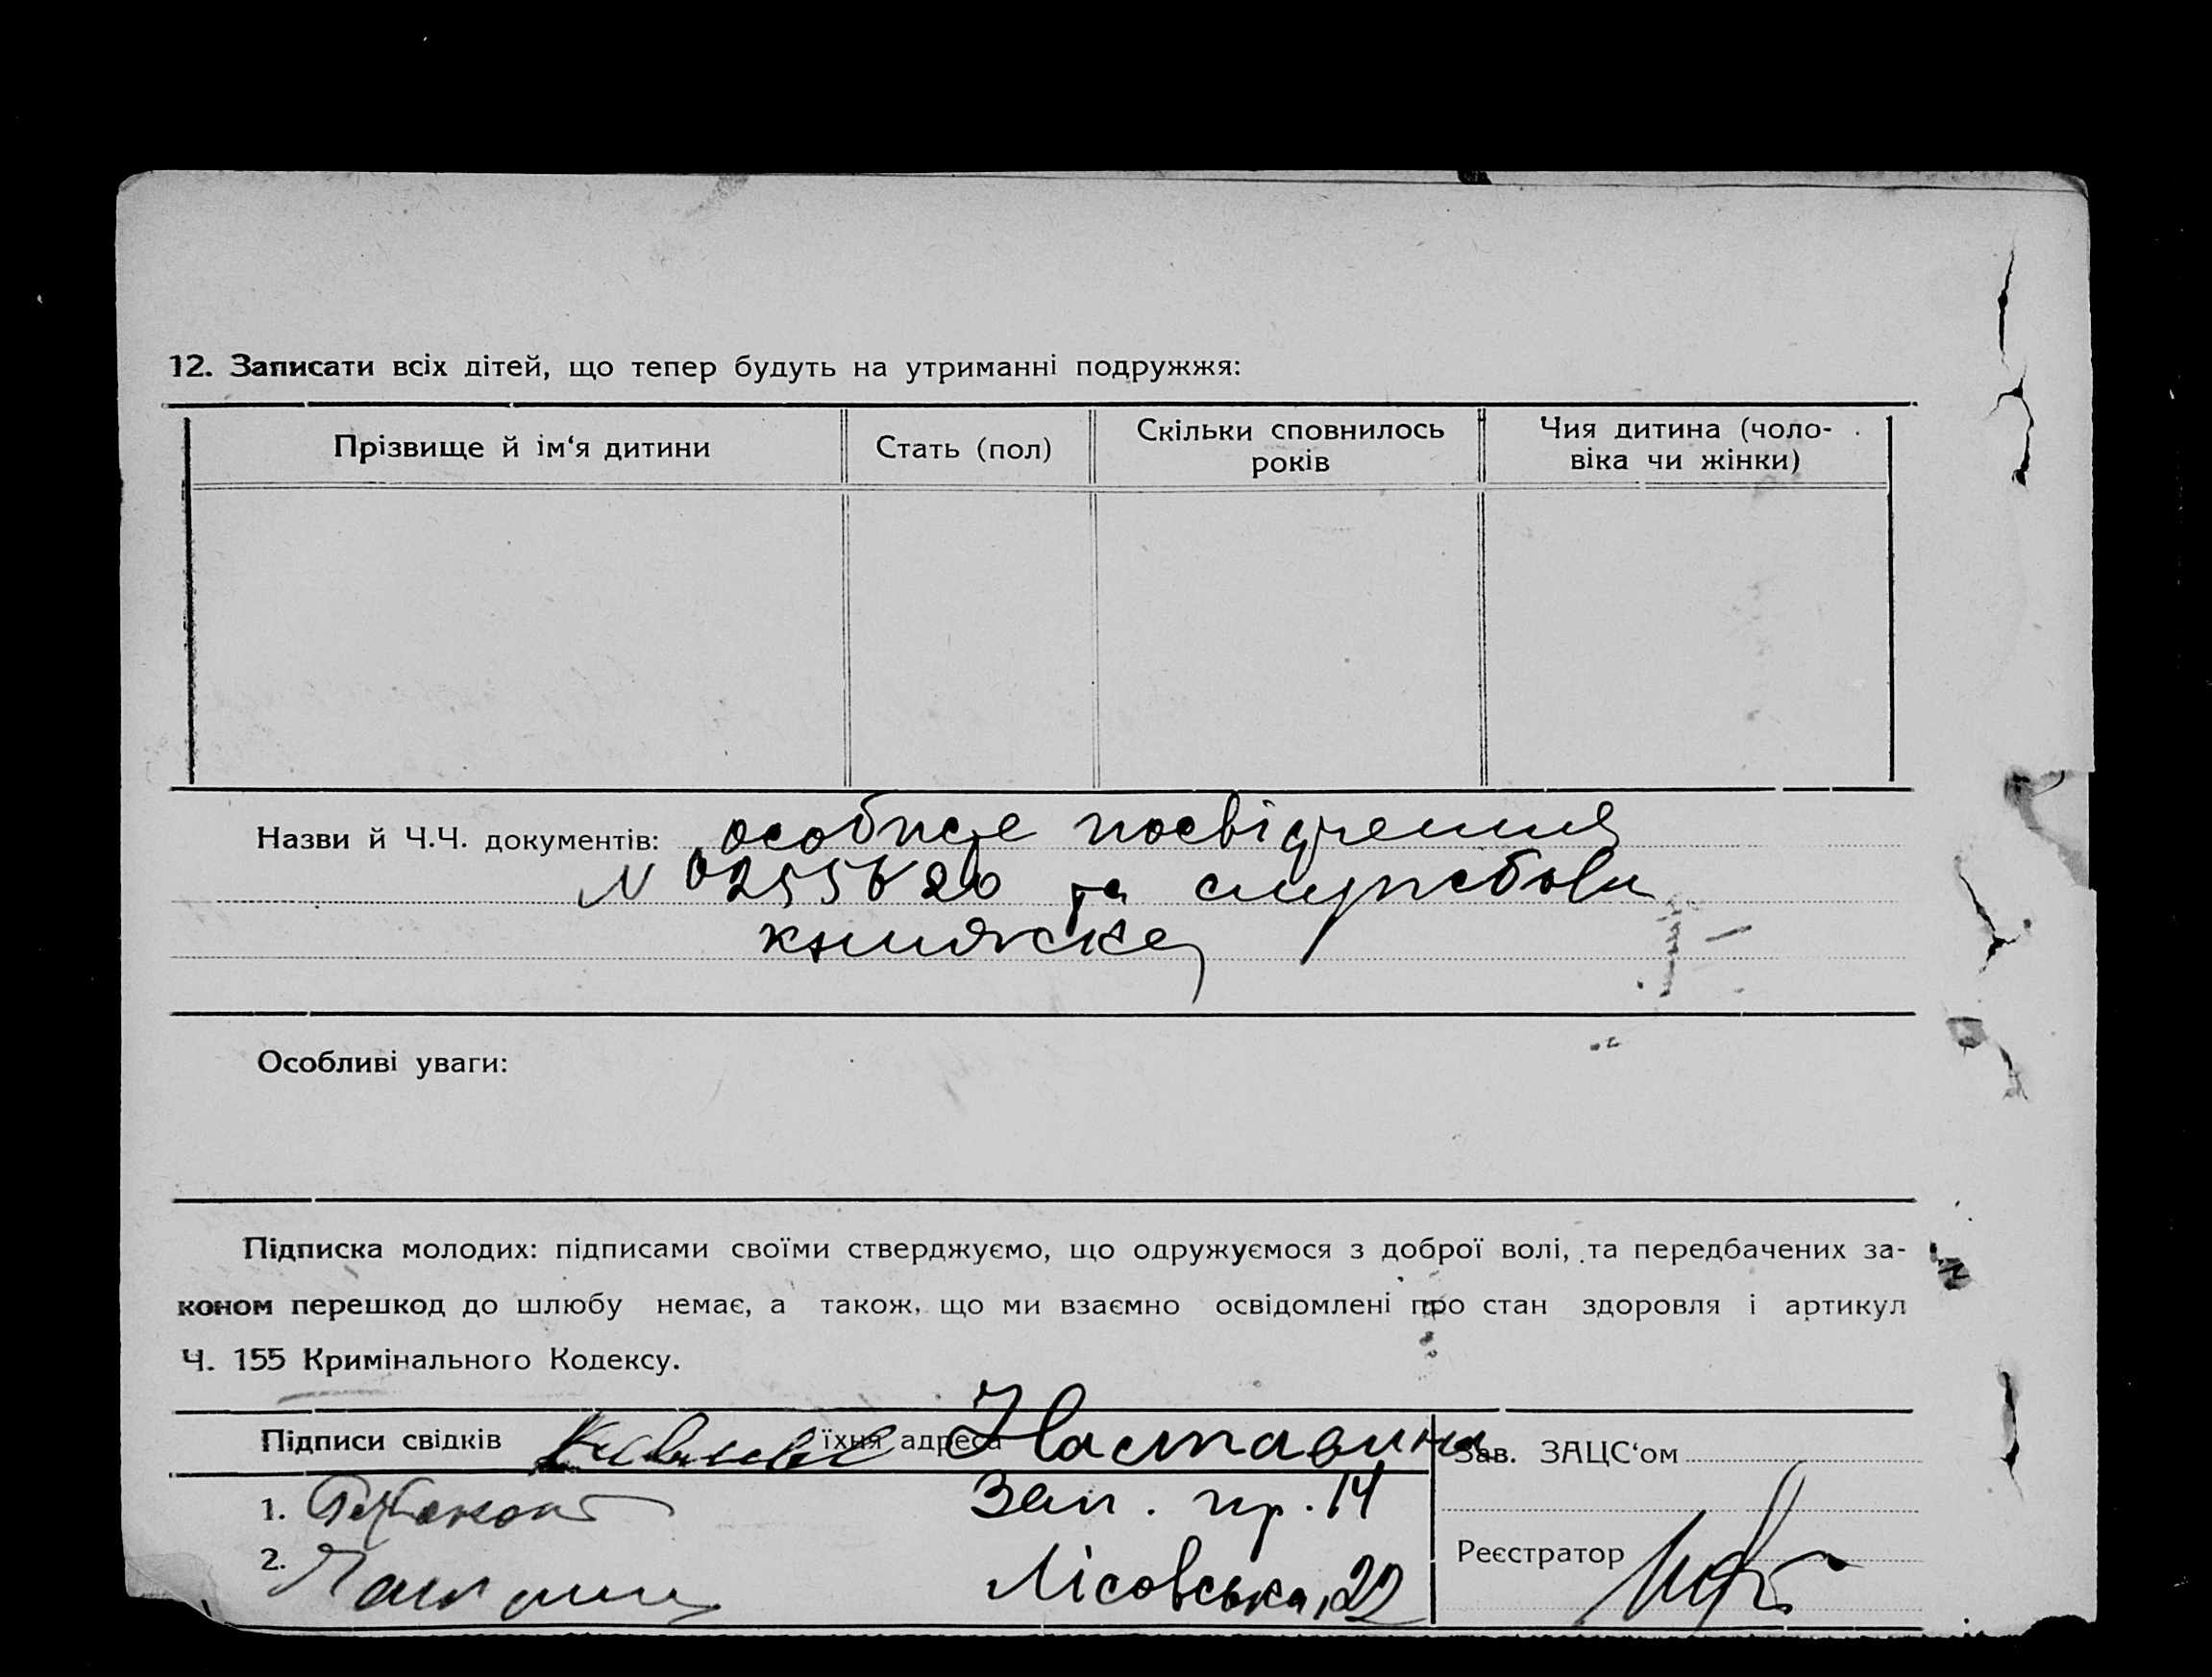 12. Записати всіх дітей, що тепер будуть на утриманні подружжя:
Прізвище й ім‘я дитини
Стать (пол)
Скільки сповнилось
років
Чия дитина (чоло-
віка чи жінки)
Назви й Ч.Ч. документів: особисте посвідчення
N та службова
книжка
Особливі уваги:
Підписка молодих: підписами своїми стверджуємо, що одружуємося з доброї волі, та передбачених за-
коном перешкод до шлюбу немає, а також, що ми взаємно освідомлені про стан здоровля і артикул
Ч. 155 Кримінального Кодексу.
Підписи свідків їхня адреса
Зав. ЗАЦС‘ом
1. Зал. пр. 14
2. Лісовська, 22
Реєстратор